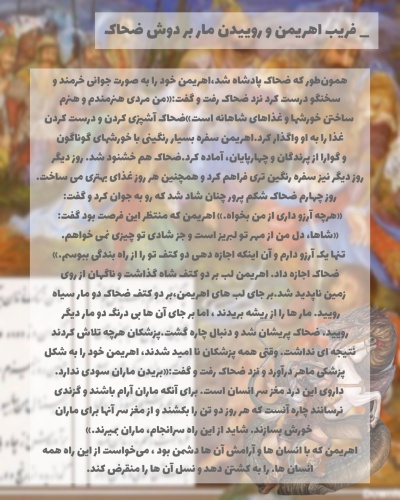 _ فریب اهریمن و روییدن مار بر دوش ضحاک
همون‌طور که ضحاک پادشاه شد،اهریمن خود را به صورت جوانی خرمند و
سخنگو درست کرد نزد ضحاک رفت و گفت:«من مردی هنرمندم و هنرم
ساختن خورشها و غذاهای شاهانه است»ضحاک آشپزی کردن و درست کردن
غذا را به او واگذار کرد.اهریمن سفره بسیار رنگینی با خورشهای گوناگون
و گوارا از پرندگان و چهارپایان، آماده کرد.ضحاک هم خشنود شد. روز دیگر
روز دیگر نیز سفره رنگین تری فراهم کرد و همچنین هر روز غذای بهتری می ساخت.
روز چهارم ضحاک شکم پرور چنان شاد شد که رو به جوان کرد و گفت:
«هرچه آرزو داری از من بخواه.» اهریمن که منتظر این فرصت بود گفت:
«شاها، دل من از مهر تو لبریز است و جز شادی تو چیزی نمی خواهم.
تنها یک آرزو دارم و آن اینکه اجازه دهی دو کتف تو را از راه بندگی ببوسم.»
ضحاک اجازه داد. اهریمن لب بر دو کتف شاه گذاشت و ناگهان از روی
زمین ناپدید شد.بر جای لب های اهریمن،بر دو کتف ضحاک دو مار سیاه
رویید. مار ها را از ریشه بریدند ، اما بر جای آن ها بی درنگ دو مار دیگر
رویید. ضحاک پریشان شد و دنبال چاره گشت.پزشکان هرچه تلاش کردند
نتیجه ای نداشت. وقتی همه پزشکان نا امید شدند، اهریمن خود را به شکل
پزشکی ماهر درآورد و نزد ضحاک رفت و گفت:«بریدن ماران سودی ندارد.
داروی این درد مغز سر انسان است. برای آنکه ماران آرام باشند و گزندی
نرسانند چاره آنست که هر روز دو تن را بکشند و از مغز سر آنها برای ماران
خورش بسازند. شاید از این راه سرانجام، ماران بمیرند.»
اهریمن که با انسان ها و آرامش آن ها دشمن بود ، می‌خواست از این راه همه
انسان ها، را به کشتن دهد و نسل آن ها را منقرض کند.